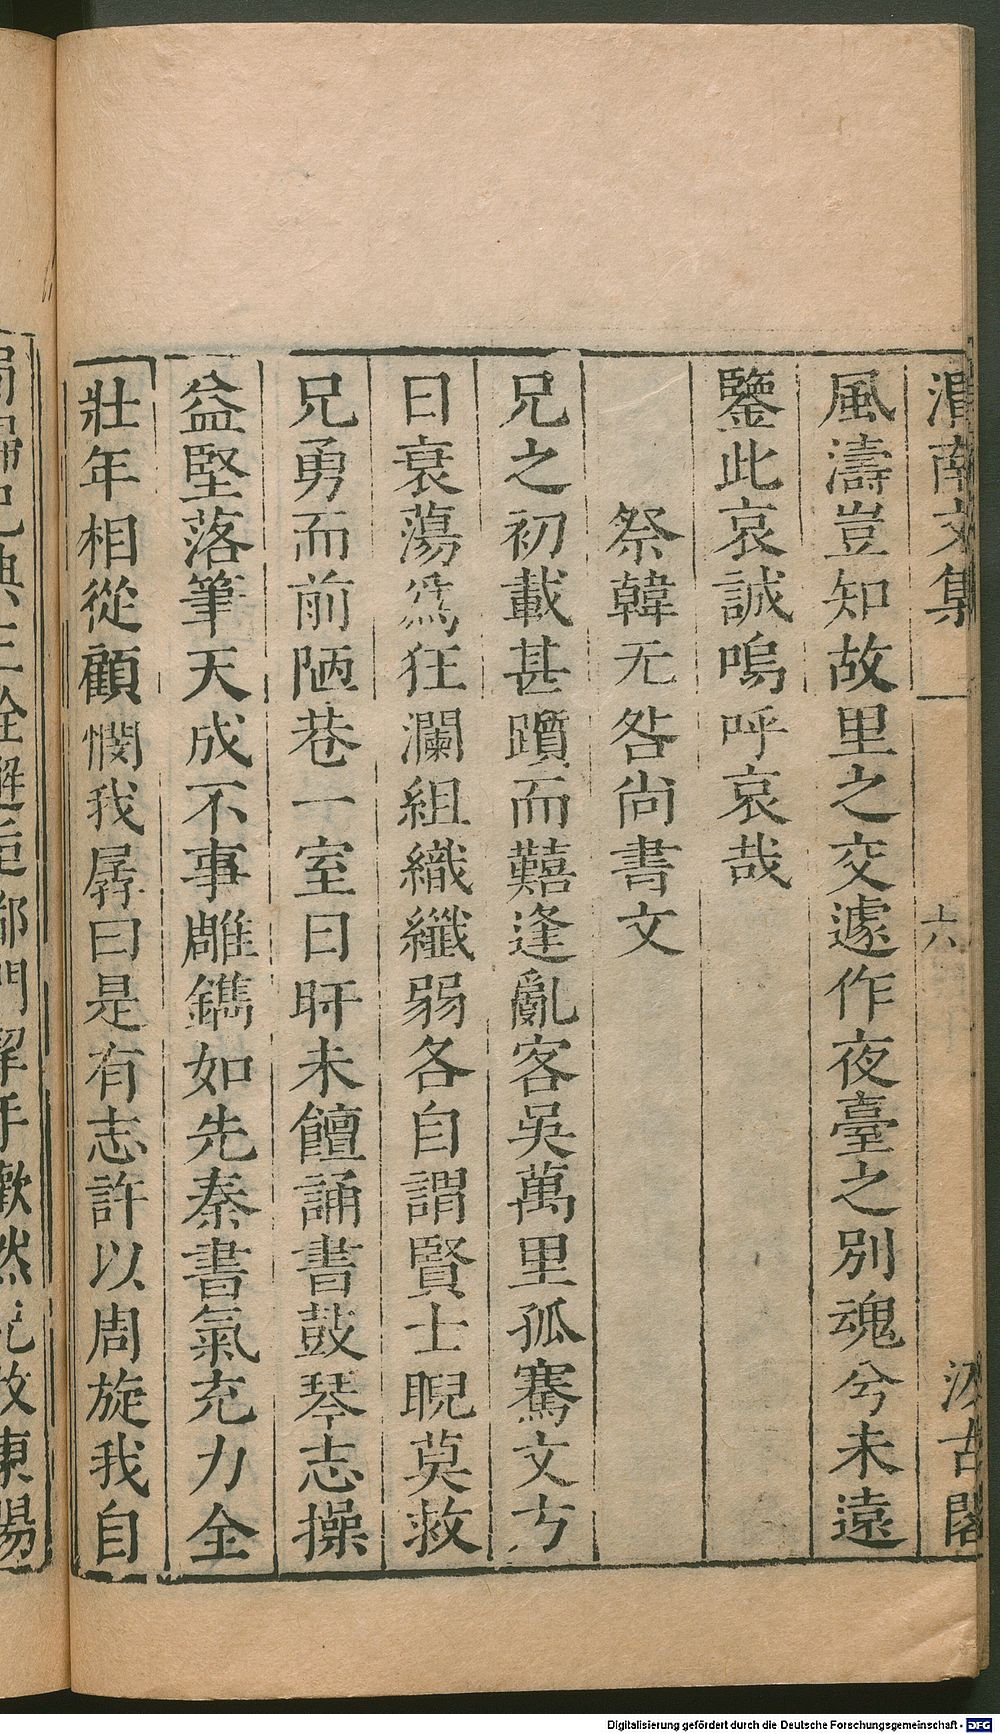 渭南文集
六
汲古閣
風濤豈知故里之交遽作夜臺之別魂兮未遠
鑒此哀誠嗚呼哀哉
祭韓无咎尚書文
兄之初載甚躓而囏逢亂客吳萬里孤騫文方
日衰蕩爲狂瀾組織纖弱各自謂賢士睨莫救
兄勇而前陋巷一室日旰未饘誦書鼓琴志操
益堅落筆天成不事雕鐫如先秦書氣充力全
壯年相從顧憫我孱曰是有志許以周旋我自
Digitalisierung gefördert durch die Deutsche Forschungsgemeinschaft - DFG